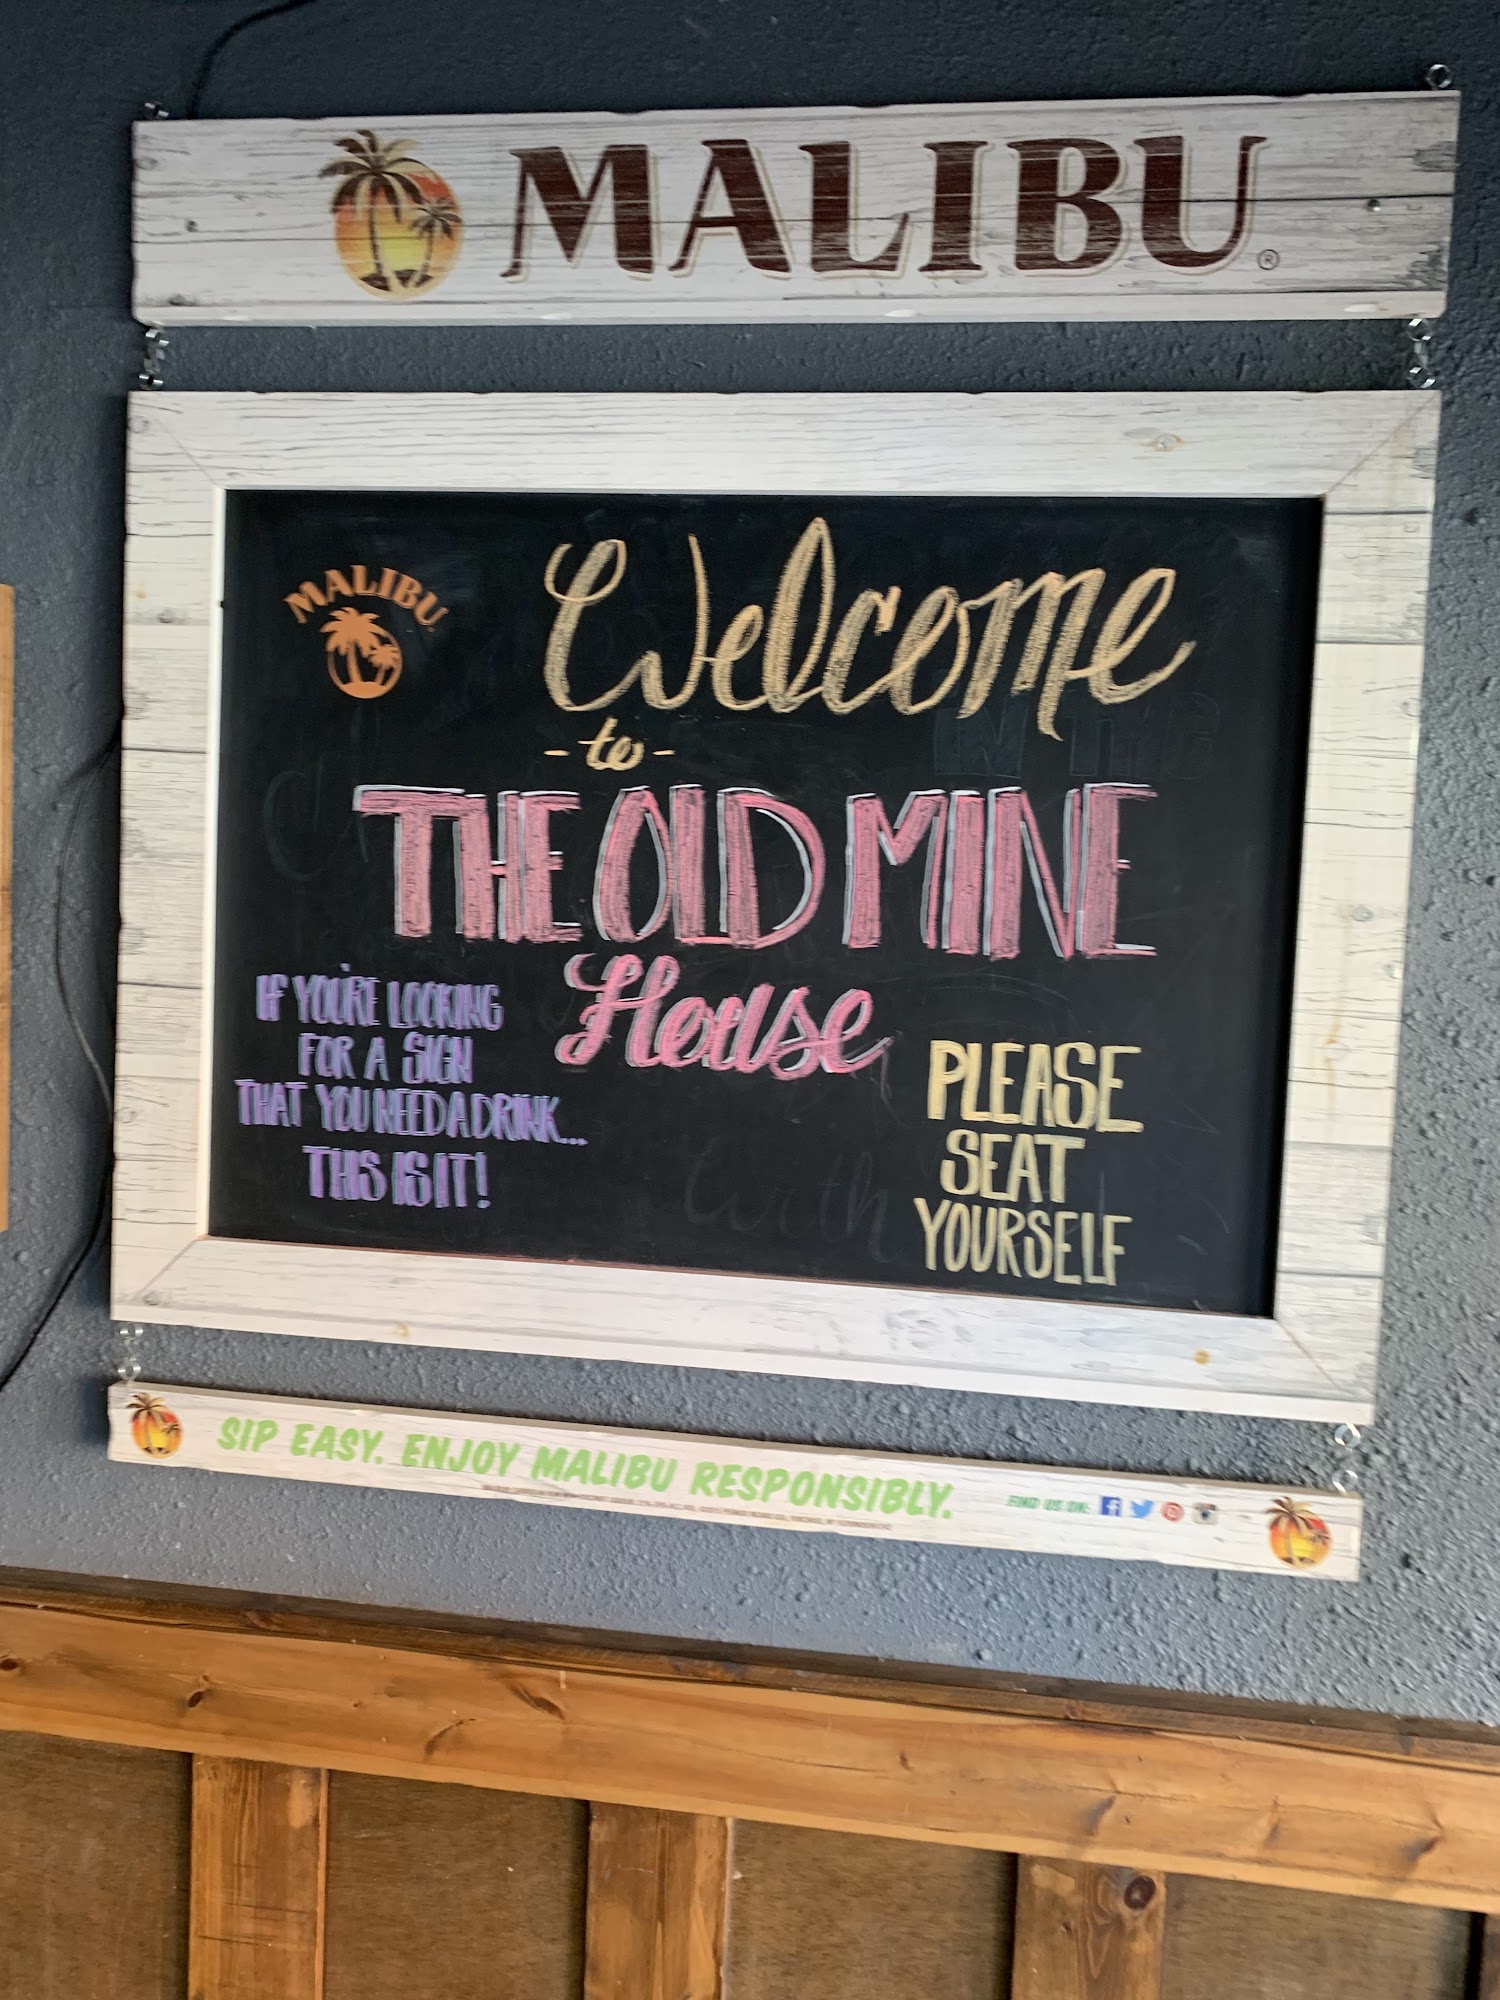 MALIBU®
MALIBU
Welcome
- to -
THE OLD MINE
House
IF YOU'RE LOOKING
FOR A SIGN
THAT YOU NEED A DRINK...
THIS IS IT!
PLEASE
SEAT
YOURSELF
SIP EASY. ENJOY MALIBU RESPONSIBLY.
FIND US ON: